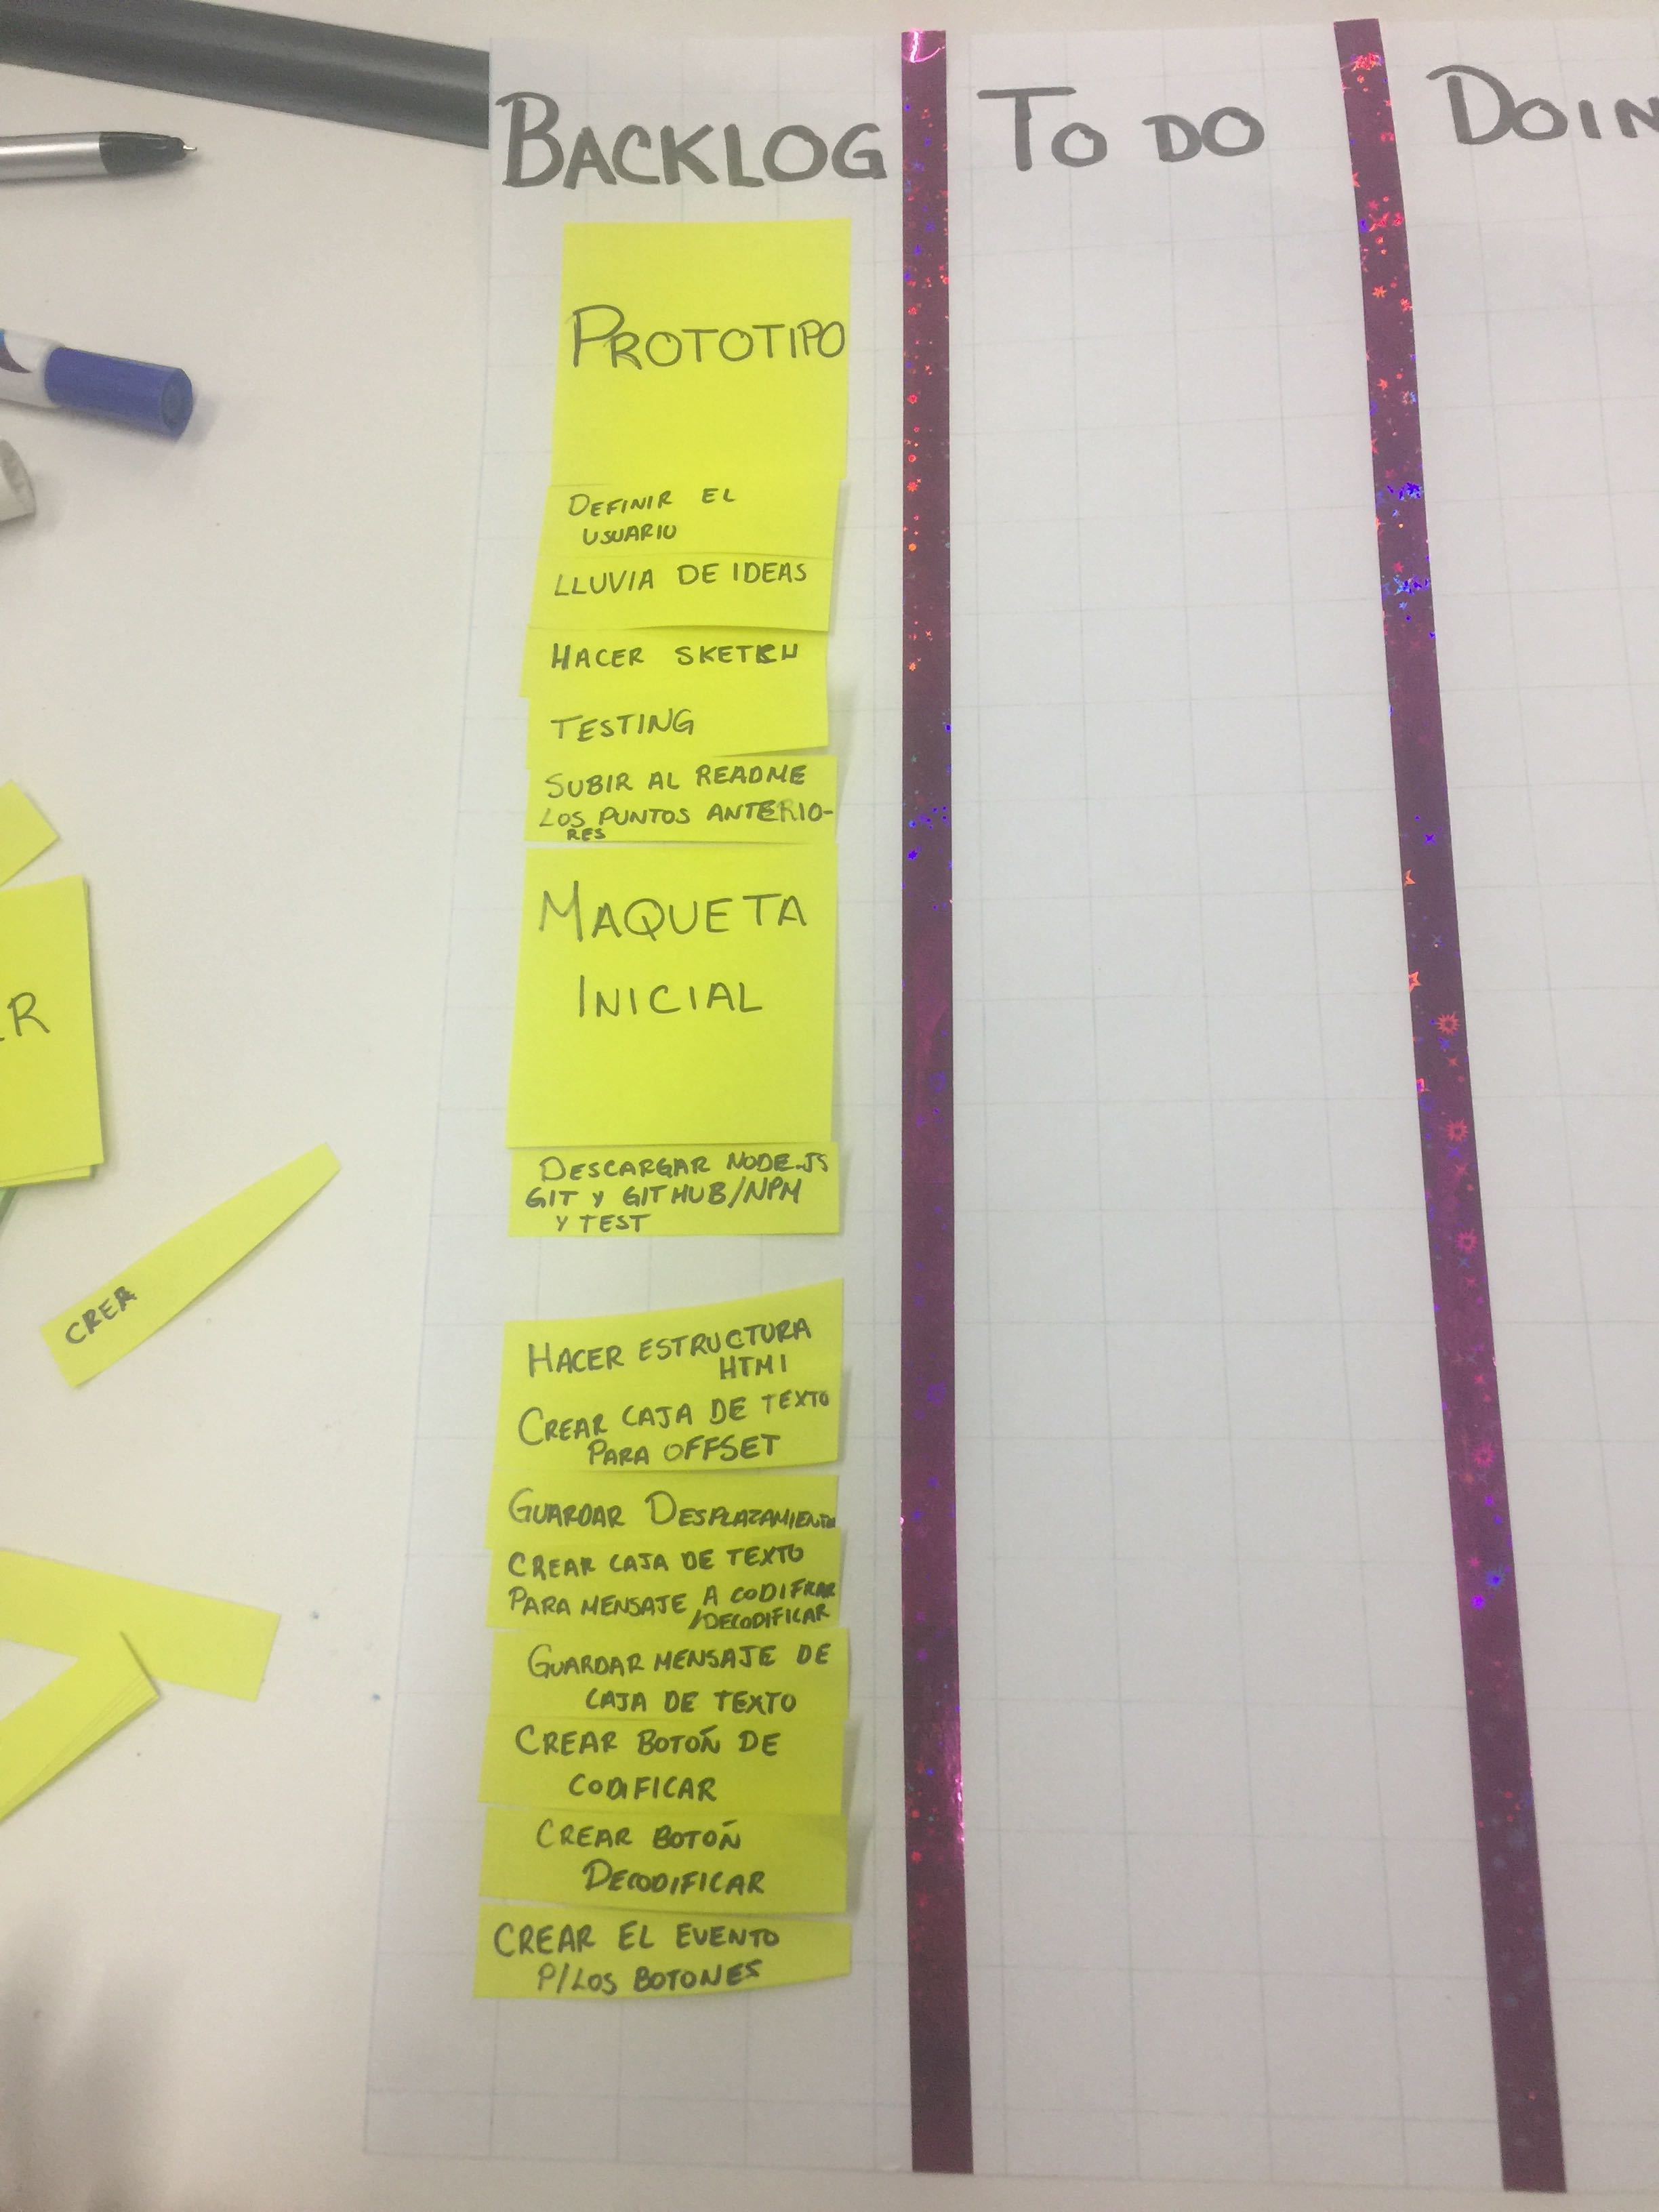 BACKLOG
TO DO
DOIN
PROTOTIPO
DEFINIR EL
USUARIO
LLUVIA DE IDEAS
HACER SKETCH
TESTING
SUBIR AL README
LOS PUNTOS ANTERIO-
RES
MAQUETA
INICIAL
DESCARGAR NODE.JS
GIT Y GITHUB/NPM
Y TEST
HACER ESTRUCTURA
HTML
CREAR CAJA DE TEXTO
PARA OFFSET
GUARDAR DESPLAZAMIENTO
CREAR CAJA DE TEXTO
PARA MENSAJE A CODIFICAR
/DECODIFICAR
GUARDAR MENSAJE DE
CAJA DE TEXTO
CREAR BOTOÑ DE
CODIFICAR
CREAR BOTOÑ
DECODIFICAR
CREAR EL EVENTO
P/LOS BOTONES
R
CREA